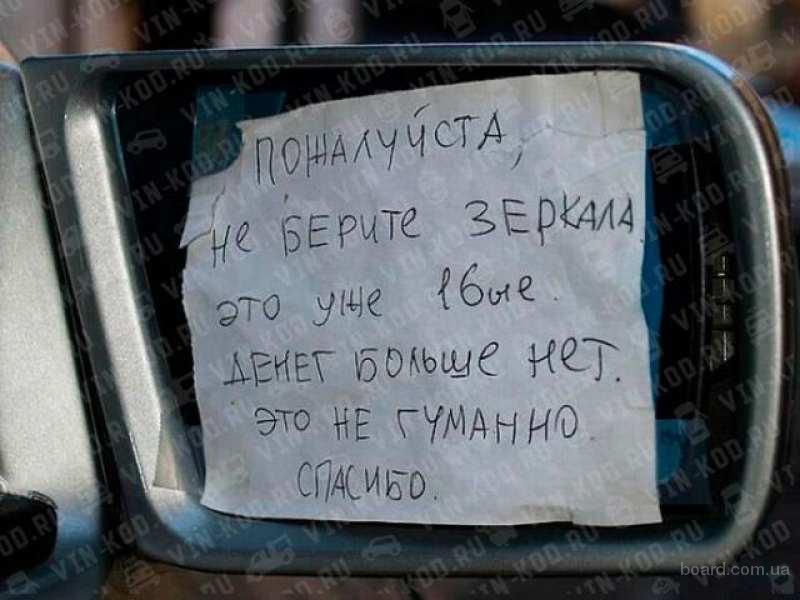 ПОЖАЛУЙСТА,
НЕ БЕРИТЕ ЗЕРКАЛА.
ЭТО УЖЕ 16ые.
ДЕНЕГ БОЛЬШЕ НЕТ.
ЭТО НЕ ГУМАННО.
СПАСИБО.
VIN-KOD.RU
board.com.ua